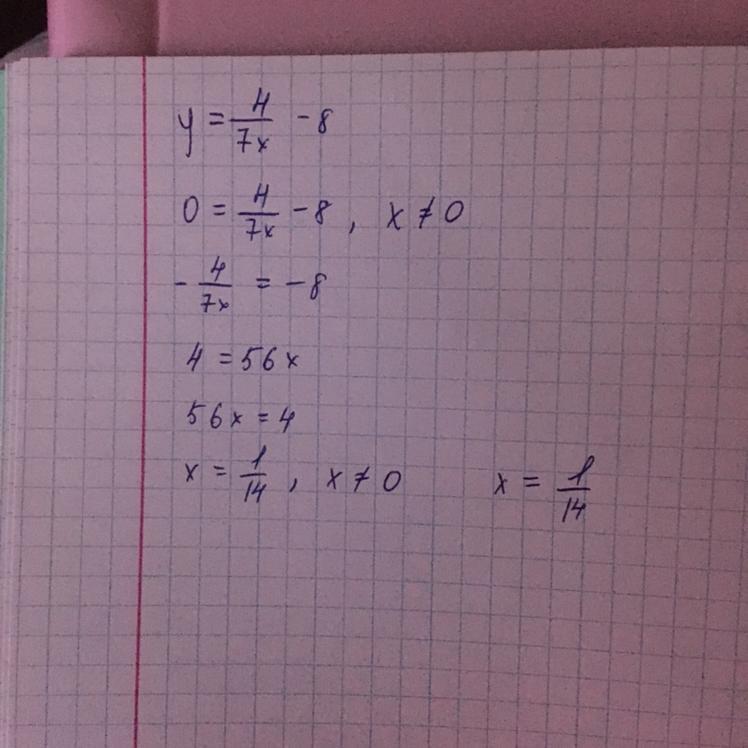 y = 4/7x - 8
0 = 4/7x - 8 , x ≠ 0
- 4/7x = - 8
4 = 56x
56x = 4
x = 1/14 , x ≠ 0 x = 1/14